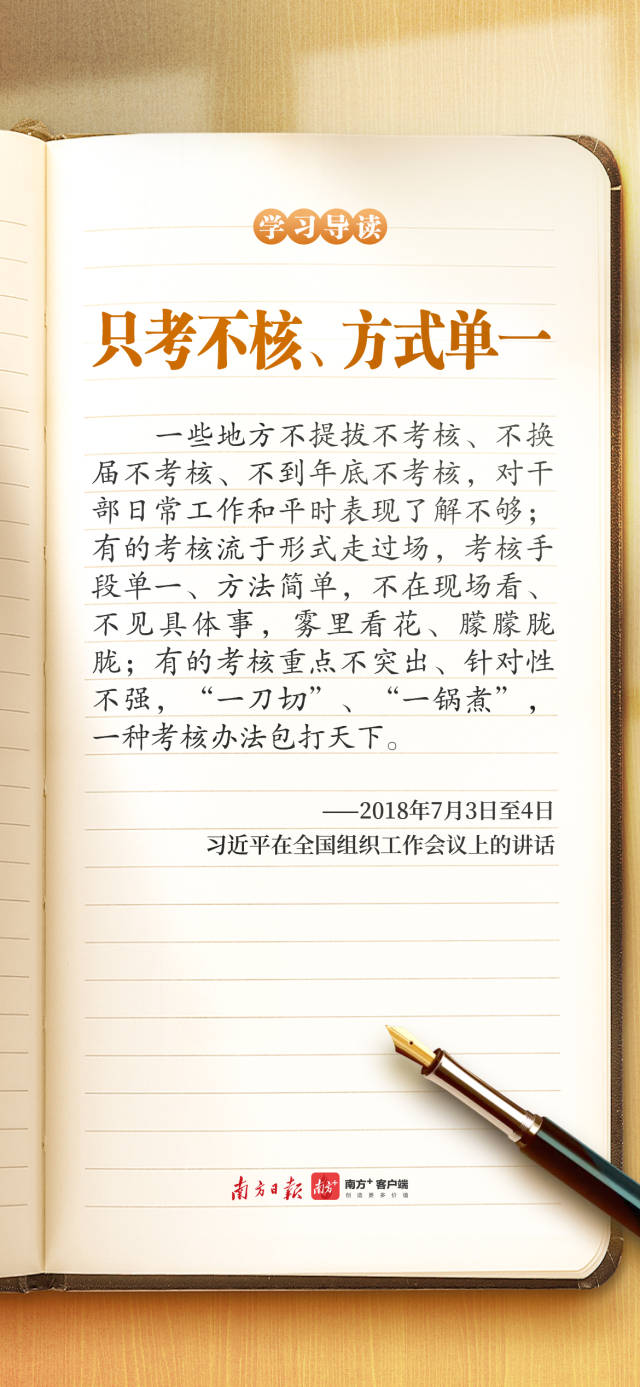 学习导读
只考不核、方式单一
一些地方不提拔不考核、不换
届不考核、不到年底不考核，对干
部日常工作和平时表现了解不够；
有的考核流于形式走过场，考核手
段单一、方法简单，不在现场看、
不见具体事，雾里看花、朦朦胧
胧；有的考核重点不突出、针对性
不强，“一刀切”、“一锅煮”，
一种考核办法包打天下。
——2018年7月3日至4日
习近平在全国组织工作会议上的讲话
南方日报 南方+ 南方+ 客户端
创造更多价值